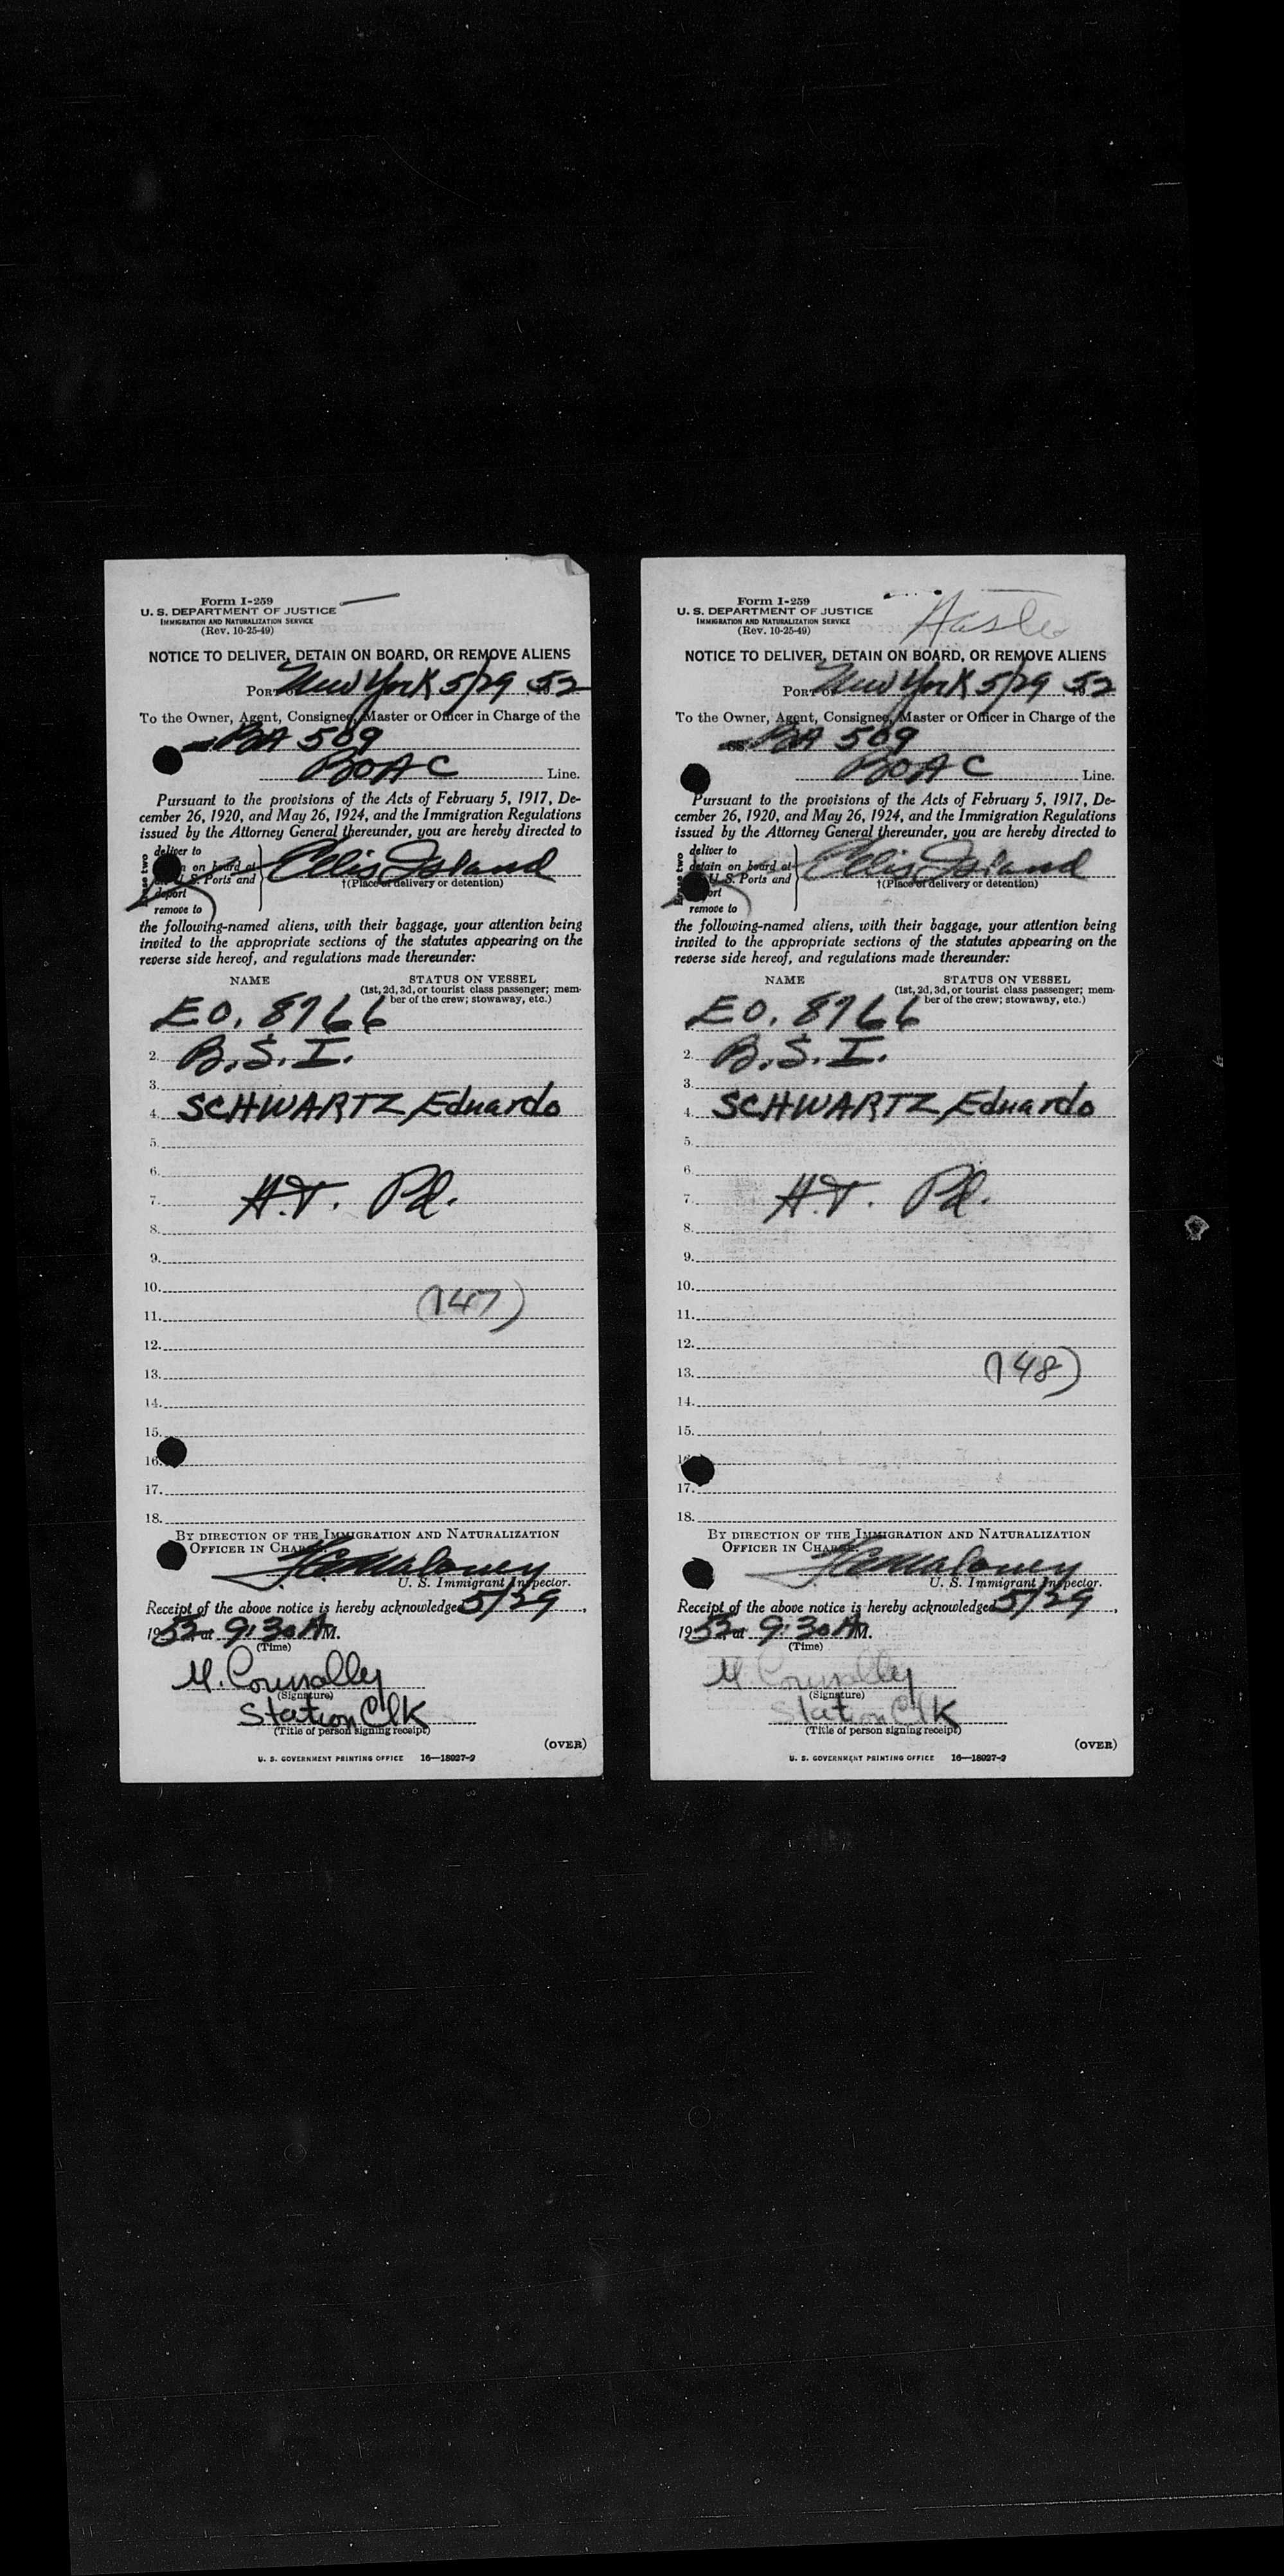 Form I-259
U. S. DEPARTMENT OF JUSTICE
IMMIGRATION AND NATURALIZATION SERVICE
(Rev. 10-25-49)
NOTICE TO DELIVER, DETAIN ON BOARD, OR REMOVE ALIENS
PORT New York 5/29 52
To the Owner, Agent, Consignee, Master or Officer in Charge of the
BA 509
BOAC Line.
Pursuant to the provisions of the Acts of February 5, 1917, De-
cember 26, 1920, and May 26, 1924, and the Immigration Regulations
issued by the Attorney General thereunder, you are hereby directed to
deliver to
on board at Ellis Island
U. S. Ports and †(Place of delivery or detention)
deport
remove to
the following-named aliens, with their baggage, your attention being
invited to the appropriate sections of the statutes appearing on the
reverse side hereof, and regulations made thereunder:
NAME STATUS ON VESSEL
(1st, 2d, 3d, or tourist class passenger; mem-
ber of the crew; stowaway, etc.)
EO. 8766
2. B.S.I.
3.
4. SCHWARTZ, Eduardo
5.
6.
7. H.T. Pd.
8.
9.
10.
(147)
11.
12.
13.
14.
15.
16.
17.
18.
BY DIRECTION OF THE IMMIGRATION AND NATURALIZATION
OFFICER IN CHARGE.
U. S. Immigrant Inspector.
Receipt of the above notice is hereby acknowledged 5/29,
1952 at 9:30 AM.
(Time)
M. Connolly
(Signature)
Station Clk
(Title of person signing receipt)
(OVER)
U. S. GOVERNMENT PRINTING OFFICE 16—18027-2
Form I-259
U. S. DEPARTMENT OF JUSTICE
IMMIGRATION AND NATURALIZATION SERVICE
(Rev. 10-25-49)
NOTICE TO DELIVER, DETAIN ON BOARD, OR REMOVE ALIENS
PORT OF New York 5/29 52
To the Owner, Agent, Consignee, Master or Officer in Charge of the
SS. BA 509
BOAC Line.
Pursuant to the provisions of the Acts of February 5, 1917, De-
cember 26, 1920, and May 26, 1924, and the Immigration Regulations
issued by the Attorney General thereunder, you are hereby directed to
deliver to
detain on board at Ellis Island
U. S. Ports and †(Place of delivery or detention)
remove to
the following-named aliens, with their baggage, your attention being
invited to the appropriate sections of the statutes appearing on the
reverse side hereof, and regulations made thereunder:
NAME STATUS ON VESSEL
(1st, 2d, 3d, or tourist class passenger; mem-
ber of the crew; stowaway, etc.)
EO. 8766
2. B.S.I.
3.
4. SCHWARTZ, Eduardo
5.
6.
7. H.T. Pd.
8.
9.
10.
11.
12.
13. (148)
14.
15.
16
17.
18.
BY DIRECTION OF THE IMMIGRATION AND NATURALIZATION
OFFICER IN CHARGE.
U. S. Immigrant Inspector.
Receipt of the above notice is hereby acknowledged 5/29,
1952 at 9:30 AM.
(Time)
M. Connolly
(Signature)
Station Clk
(Title of person signing receipt)
(OVER)
U. S. GOVERNMENT PRINTING OFFICE 16—18027-2